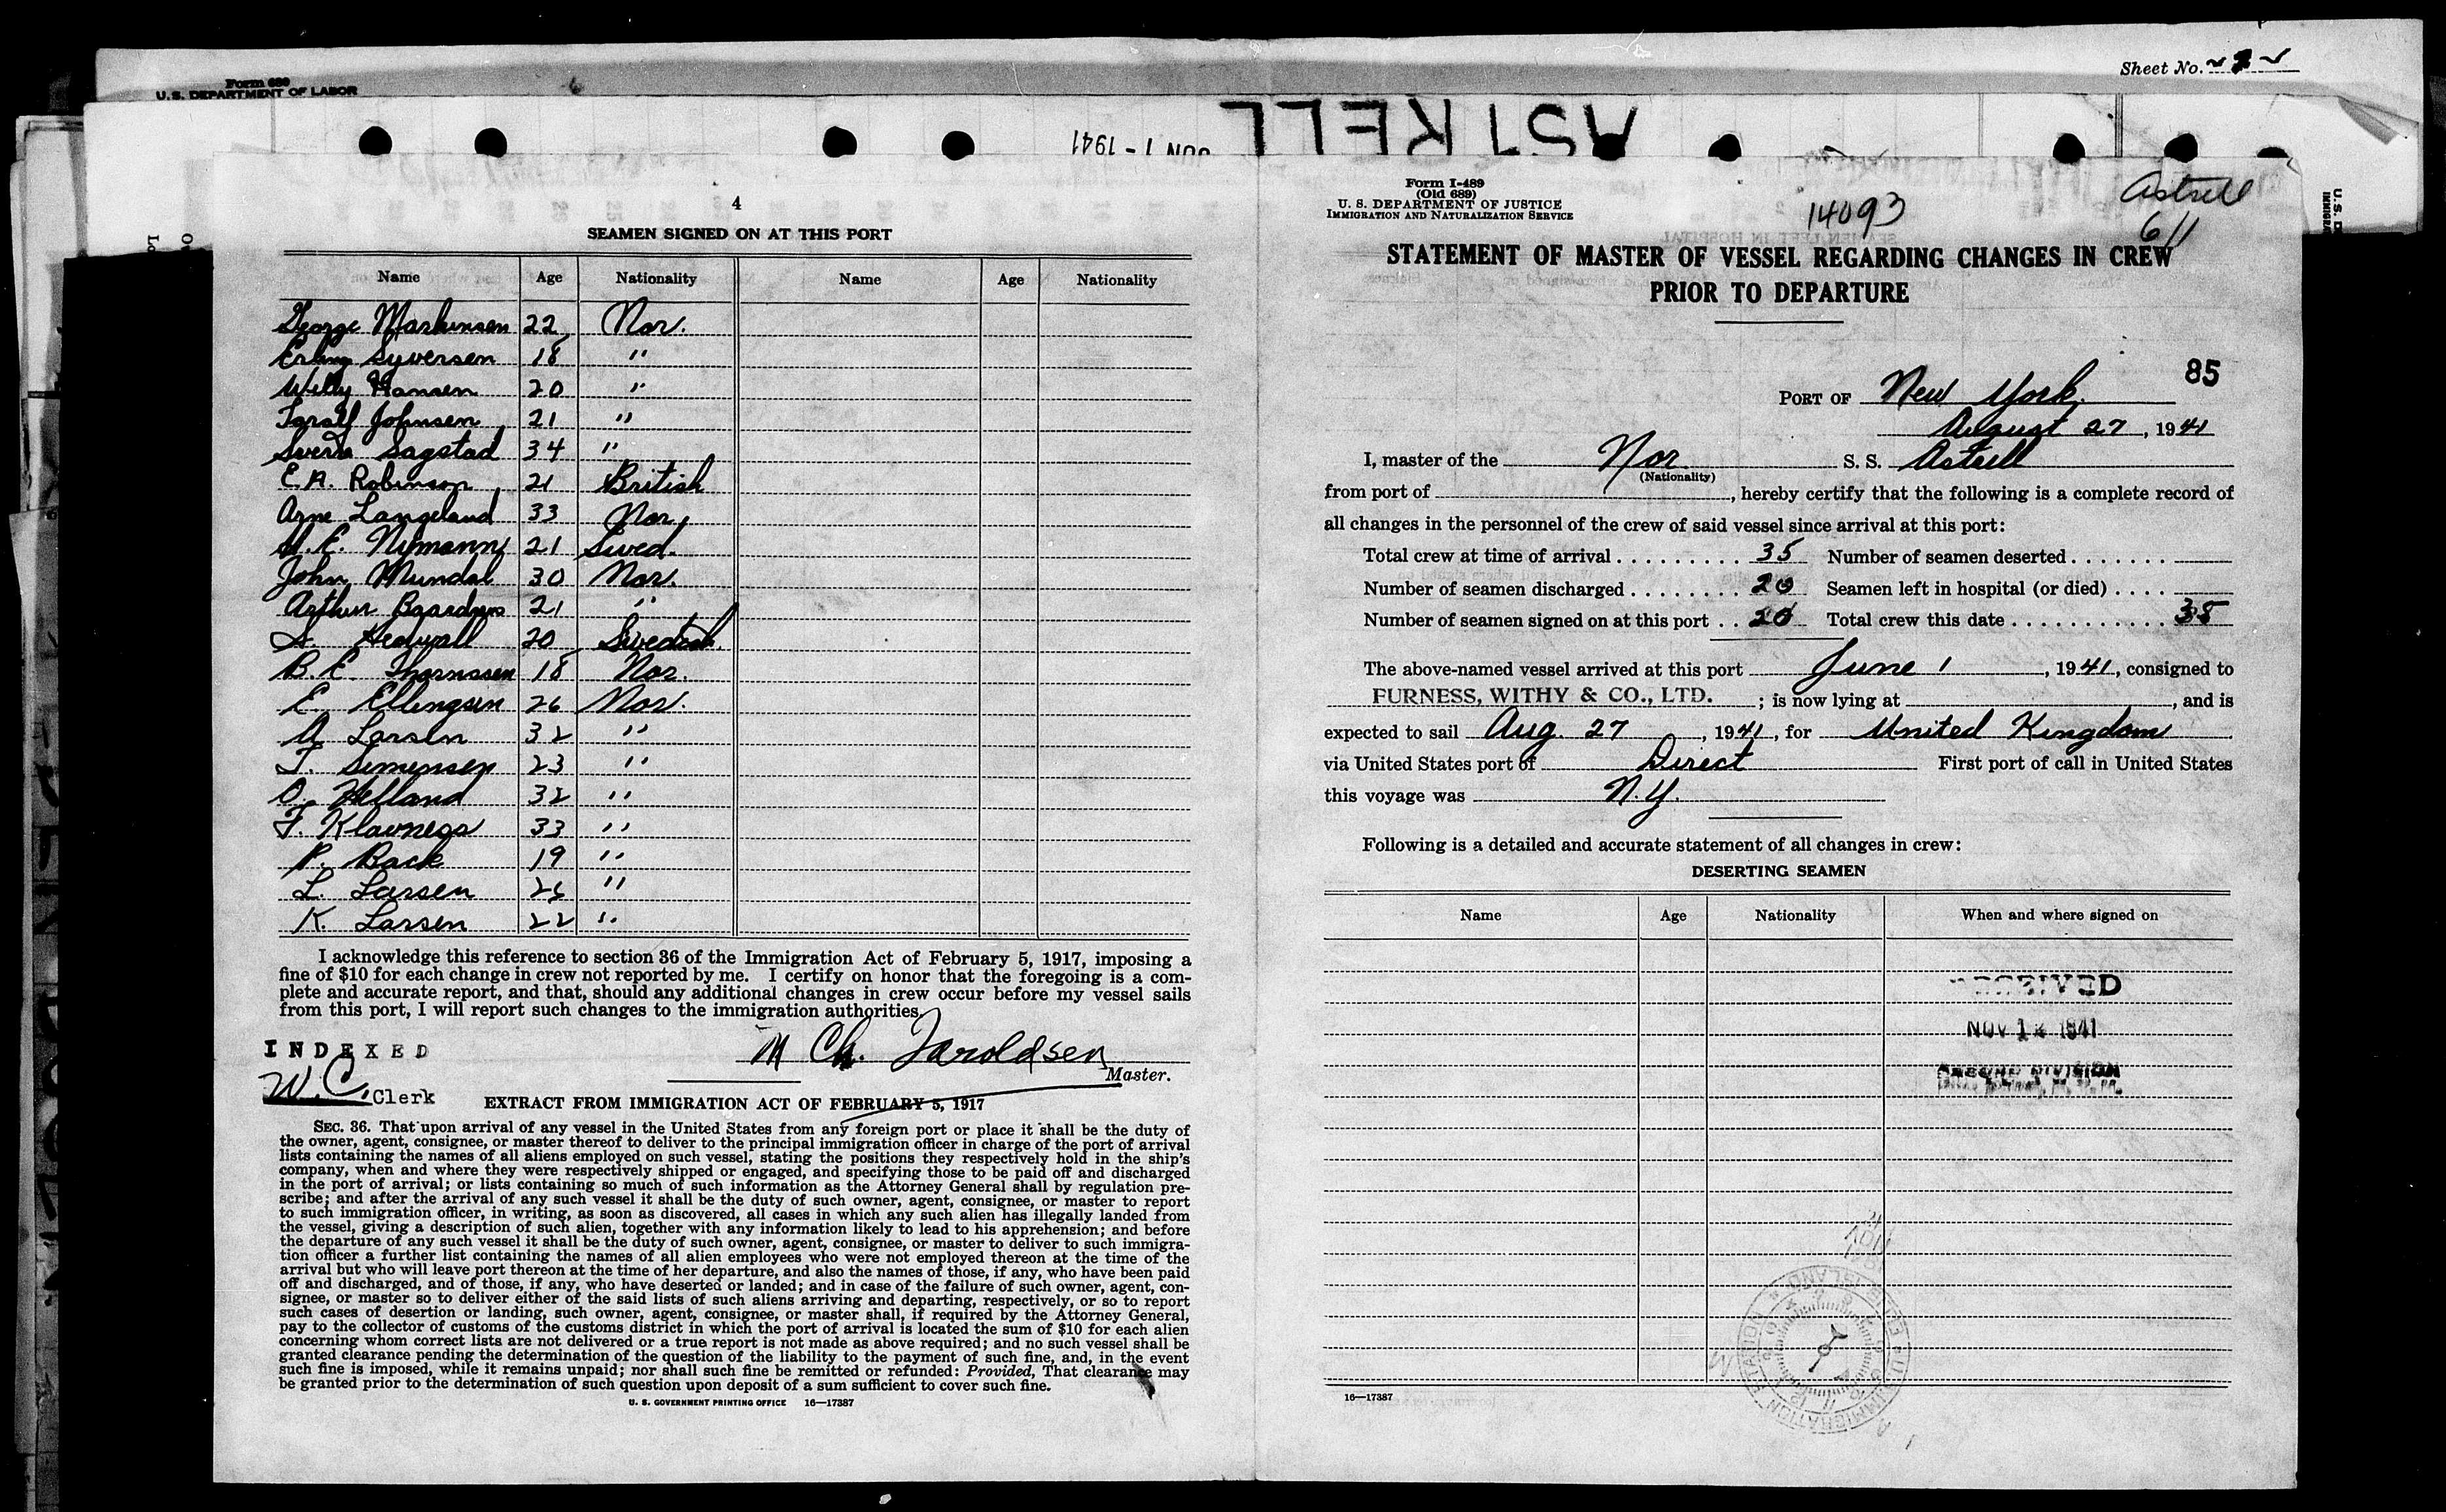 Form 689
U. S. DEPARTMENT OF LABOR
Sheet No. 2
ASTRELL
JUN 1 - 1941
4
SEAMEN SIGNED ON AT THIS PORT
Name Age Nationality Name Age Nationality
George Markussen 22 Nor.
Erling Syversen 18 "
Willy Hansen 20 "
Toralf Johnsen 21 "
Sverre Sagstad 34 "
E. A. Robinson 21 British
Arne Langeland 33 Nor.
E. Nymann 21 Swed.
John Mundal 30 Nor.
Arthur 21 "
20 Swedish
B. E. Thomassen 18 Nor.
E. Ellingsen 26 Nor.
A Larsen 32 "
T. Simensen 23 "
O. Helland 32 "
33 "
P. Back 19 "
L. Larsen "
K. Larsen 22 "
I acknowledge this reference to section 36 of the Immigration Act of February 5, 1917, imposing a
fine of $10 for each change in crew not reported by me. I certify on honor that the foregoing is a com-
plete and accurate report, and that, should any additional changes in crew occur before my vessel sails
from this port, I will report such changes to the immigration authorities.
INDEXED
M Ch. Haroldsen
Master.
W. C. Clerk
EXTRACT FROM IMMIGRATION ACT OF FEBRUARY 5, 1917
SEC. 36. That upon arrival of any vessel in the United States from any foreign port or place it shall be the duty of
the owner, agent, consignee, or master thereof to deliver to the principal immigration officer in charge of the port of arrival
lists containing the names of all aliens employed on such vessel, stating the positions they respectively hold in the ship's
company, when and where they were respectively shipped or engaged, and specifying those to be paid off and discharged
in the port of arrival; or lists containing so much of such information as the Attorney General shall by regulation pre-
scribe; and after the arrival of any such vessel it shall be the duty of such owner, agent, consignee, or master to report
to such immigration officer, in writing, as soon as discovered, all cases in which any such alien has illegally landed from
the vessel, giving a description of such alien, together with any information likely to lead to his apprehension; and before
the departure of any such vessel it shall be the duty of such owner, agent, consignee, or master to deliver to such immigra-
tion officer a further list containing the names of all alien employees who were not employed thereon at the time of the
arrival but who will leave port thereon at the time of her departure, and also the names of those, if any, who have been paid
off and discharged, and of those, if any, who have deserted or landed; and in case of the failure of such owner, agent, con-
signee, or master so to deliver either of the said lists of such aliens arriving and departing, respectively, or so to report
such cases of desertion or landing, such owner, agent, consignee, or master shall, if required by the Attorney General,
pay to the collector of customs of the customs district in which the port of arrival is located the sum of $10 for each alien
concerning whom correct lists are not delivered or a true report is not made as above required; and no such vessel shall be
granted clearance pending the determination of the question of the liability to the payment of such fine, and, in the event
such fine is imposed, while it remains unpaid; nor shall such fine be remitted or refunded: Provided, That clearance may
be granted prior to the determination of such question upon deposit of a sum sufficient to cover such fine.
U. S. GOVERNMENT PRINTING OFFICE 16—17387
Form I-489
(Old 689)
U. S. DEPARTMENT OF JUSTICE
IMMIGRATION AND NATURALIZATION SERVICE
14093
Astrell
6/1
STATEMENT OF MASTER OF VESSEL REGARDING CHANGES IN CREW
PRIOR TO DEPARTURE
85
PORT OF New York
August 27, 1941
I, master of the Nor. S. S. Astrell
(Nationality)
from port of , hereby certify that the following is a complete record of
all changes in the personnel of the crew of said vessel since arrival at this port:
Total crew at time of arrival . . . . . . . . . 35 Number of seamen deserted . . . . . . .
Number of seamen discharged . . . . . . . . 20 Seamen left in hospital (or died) . . . .
Number of seamen signed on at this port . . 20 Total crew this date . . . . . . . . . . . 35
The above-named vessel arrived at this port June 1, 1941, consigned to
FURNESS, WITHY & CO., LTD. ; is now lying at , and is
expected to sail Aug. 27, 1941, for United Kingdom
via United States port of Direct First port of call in United States
this voyage was N.Y.
Following is a detailed and accurate statement of all changes in crew:
DESERTING SEAMEN
Name Age Nationality When and where signed on
RECEIVED
NOV 12 1941
16—17387